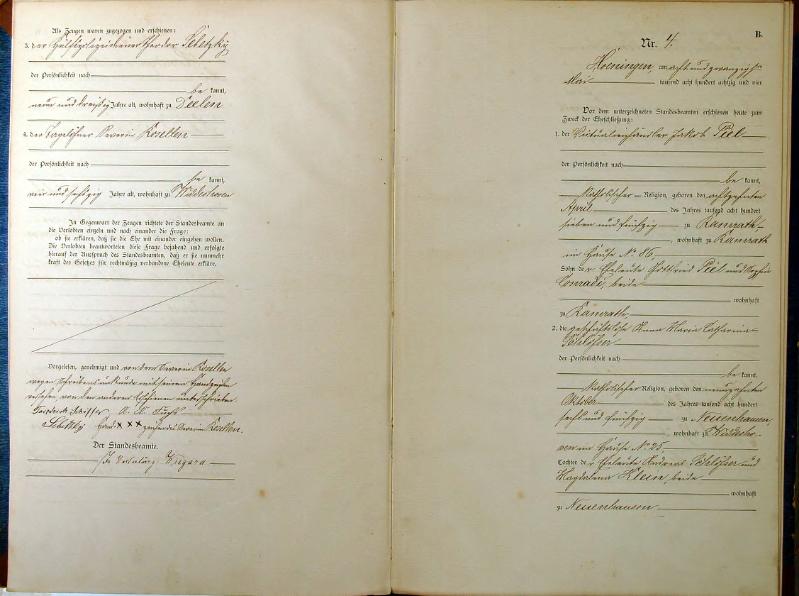 Als Zeugen waren zugezogen und erschienen:
3. der Theodor Seletzky
der Persönlichkeit nach
be kannt,
neun und dreißig Jahre alt, wohnhaft zu Deelen
4. der Tagelöhner Severin Rosellen
der Persönlichkeit nach
be kannt,
vier und sechszig Jahre alt, wohnhaft zu
In Gegenwart der Zeugen richtete der Standesbeamte an
die Verlobten einzeln und nach einander die Frage:
ob sie erklären, daß sie die Ehe mit einander eingehen wollen.
Die Verlobten beantworteten diese Frage bejahend und erfolgte
hierauf der Ausspruch des Standesbeamten, daß er sie nunmehr
kraft des Gesetzes für rechtmäßig verbundene Eheleute erkläre.
Vorgelesen, genehmigt und von dem Severin Rosellen
wegen Schreibensunkunde mit seinem Handzeichen
versehen, von den anderen unterschrieben
Schiffer
x x x Severin Rosellen.
Der Standesbeamte.
In Vertretung
B.
Nr. 4.
Hoeningen, am acht und zwanzigsten
Mai tausend acht hundert achtzig und vier
Vor dem unterzeichneten Standesbeamten erschienen heute zum
Zweck der Eheschließung:
1. der Victualienhändler Jakob Piel
der Persönlichkeit nach
be kannt,
katholischer Religion, geboren den achtzehnten
April des Jahres tausend acht hundert
sieben und fünfzig zu Ramrath
, wohnhaft zu Ramrath
im Hause No 86,
Sohn der Eheleute Gottfried Piel und Sophia
Conrads, beide
wohnhaft
zu Ramrath
2. die geschäftslose Anna Maria Catharina
Schlösser
der Persönlichkeit nach
be kannt,
katholischer Religion, geboren den neunzehnten
Oktober des Jahres tausend acht hundert
sechs und fünfzig zu Neuenhausen,
, wohnhaft zu
im Hause No 25.
Tochter der Eheleute Andreas Schlösser und
Magdalena Klein, beide
wohnhaft
zu Neuenhausen